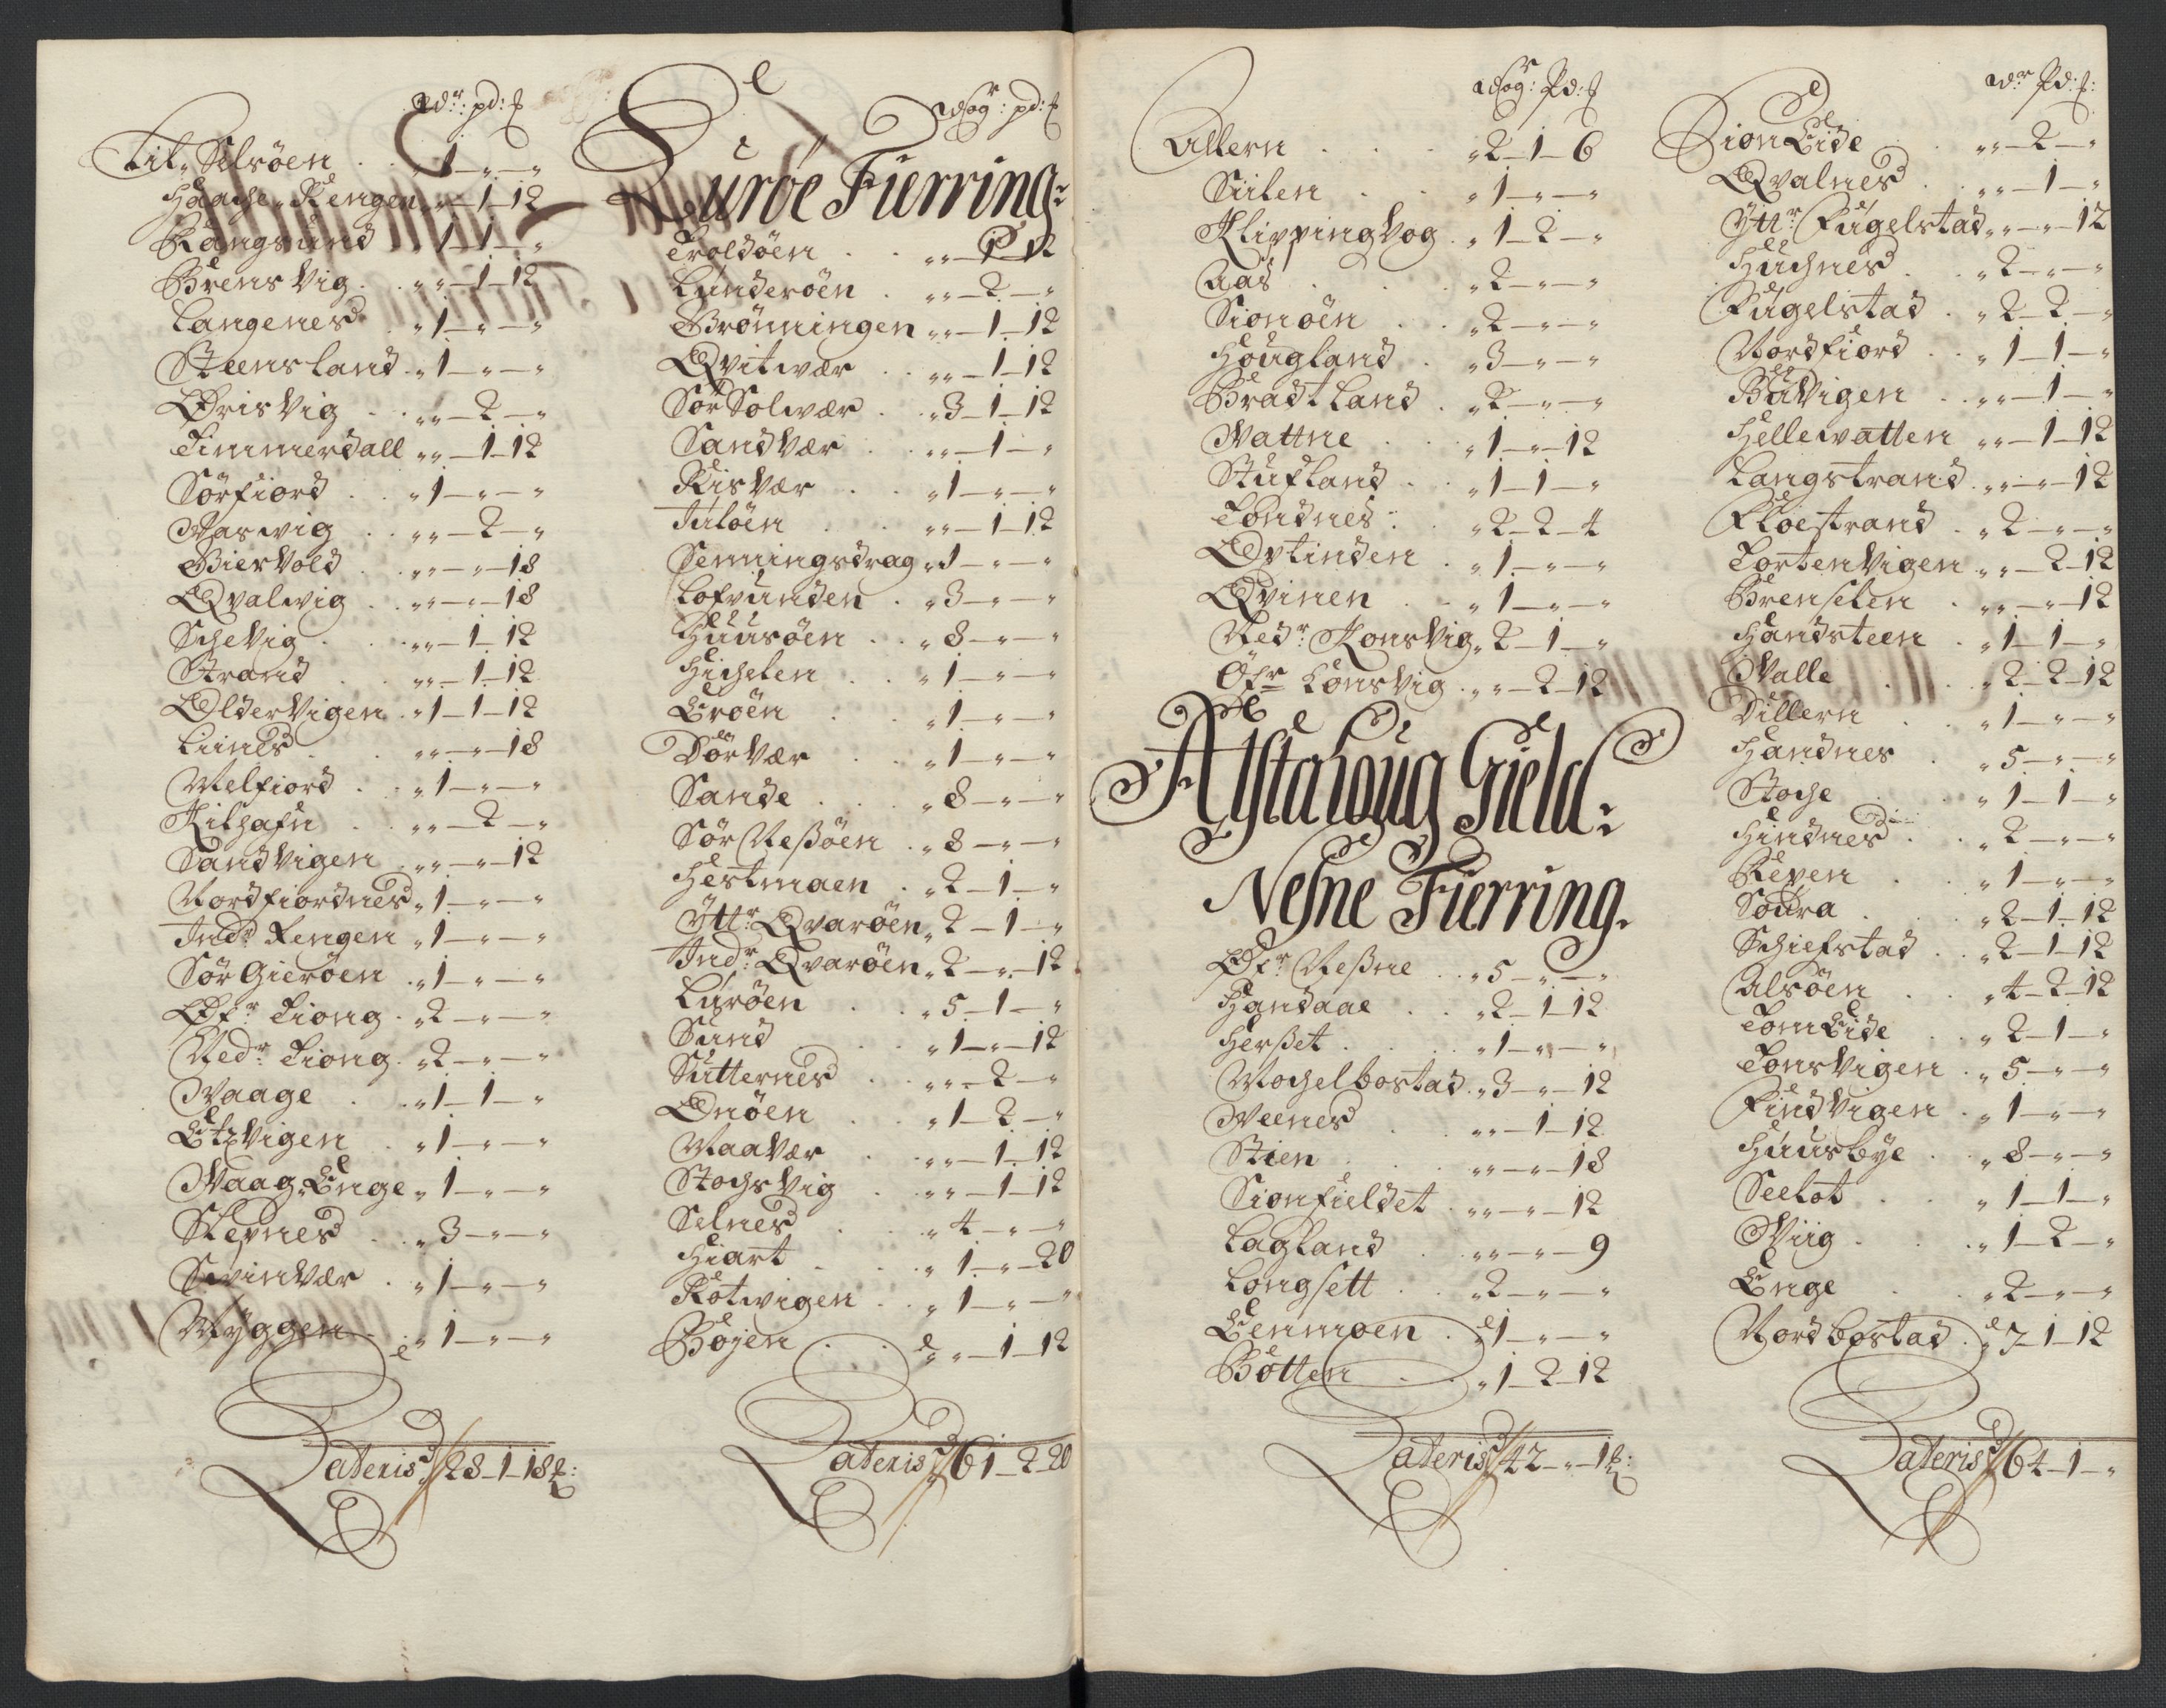 Wd.r: pd: £
Lit„ Selsöen . . „ 1 — „ — „
Haache„Rengen „ „ — 1 — 12
Rangsund . „ 1 — 1 — „
Brens Vig . „ „ — 1 — 12
Langenes . „ 1 — „ — „
Steensland . „ 1 — „ — „
Oris Vig . „ „ — 2 — „
Timmerdall „ „ — 1 — 12
Sörfiord . „ 1 — „ — „
Waswig . „ „ — 2 — „
Giersvold . „ „ — „ — 18
Qvalwig . „ „ — „ — 18
ScheVig . „ „ — 1 — 12
Strand . „ „ — 1 — 12
OlderVigen . „ 1 — 1 — 12
Liines . „ „ — „ — 18
Melfiord . „ 1 — „ — „
Kilhafn . „ „ — 2 — „
Sandvigen . „ „ — „ — 12
Nordfiordnes „ 1 — „ — „
Ind.r Rengen „ 1 — „ — „
Sör Gieröen . „ 1 — „ — „
Öf.r Tiong . „ 2 — „ — „
Ned.r Tiong . „ 2 — „ — „
Waage . „ 1 — 1 — „
EtzVigen . „ 1 — „ — „
Waag„Enge „ 1 — „ — „
Stepnes . „ 3 — „ — „
Svinvær . „ 1 — „ — „
Myggen . „ 1 — „ — „
Lateris 28 — 1 — 18 £:
Wog.r: pd: £
Luröe Fierring:
Troldöen . „ „ — 1 — 12
Lunderöen . „ „ — 2 — „
Brönningen „ „ — 1 — 12
Qvitwær . „ „ — 1 — 12
Sör Solwær . „ 3 — 1 — 12
Sandvær . „ „ — 1 — „
Risvær . „ 1 — „ — „
Juloën . „ „ — 1 — 12
Senningsdrag „ 1 — „ — „
Lofvunden . „ 3 — „ — „
Huusöen . „ 8 — „ — „
Hichelen . „ 1 — „ — „
Eröen . „ 1 — „ — „
Dörvær . „ 1 — „ — „
Sande . „ 8 — „ — „
Sör Neßöen . „ 8 — „ — „
Hestmaen . „ 2 — 1 — „
Ytt.r Qvaröen „ 2 — 1 — „
Ind.r Qvaröen „ 2 — „ — 12
Luröen . „ 5 — 1 — „
Sund . „ 1 — „ — 12
Sutternes . „ „ — 2 — „
Onöen . „ 1 — 2 — „
Maavær . „ „ — 1 — 12
Stochsvig . „ „ — 1 — 12
Selnes . „ 4 — „ — „
Hiart . „ 1 — „ — 20
Rotwigen . „ 1 — „ — „
Bojen . „ „ — 1 — 12
Lateris 61 — 2 — 20
Wog.r: Pd: £
Alteren . „ 2 — 1 — 6
Siilen . „ 1 — „ — „
Klippingvog . „ 1 — 2 — „
Aas . „ 2 — „ — „
Sionöen . „ 2 — „ — „
Hougland . „ 3 — „ — „
Bradtland . „ 2 — „ — „
Wattne . „ 1 — „ — 12
Stufland . „ 1 — 1 — „
Tondnes . „ 2 — 2 — 4
Øvtinden . „ 1 — „ — „
Qvinen . „ 1 — „ — „
Ned.r Konsvig „ 2 — 1 — „
Öf.r Konsvig . „ „ — 2 — 12
Alstahoug Gield:
Nesne Fierring.
Öf.r Neßne . „ 5 — „ — „
Handaae . „ 2 — 1 — 12
Herßet . „ 1 — „ — „
Mochelbostad „ 3 — „ — 12
Meenes . „ „ — 1 — 12
Stien . „ „ — „ — 18
Sionfieldet . „ „ — „ — 12
Lagland . „ „ — „ — 9
Longsett . „ 2 — „ — „
Lenmoen . „ 1 — „ — „
Botten . „ 1 — 2 — 12
Lateris 42 — „ — 1 £:
Wd.r Pd: £:
Sion Eide . „ „ — 2 — „
Qvalnes . „ „ — 1 — „
Ytt.r Fugelstad „ „ — „ — 12
Huchnes . „ 2 — „ — „
Fugelstad . „ 2 — 2 — „
Nordfiord . „ 1 — 1 — „
BuVigen . „ „ — 1 — „
Hellewatten „ „ — 1 — 12
Langstrand . „ „ — „ — 12
Floestrand . „ 2 — „ — „
TortenVigen „ „ — 2 — 12
Brenselen . „ „ — „ — 12
Handsteen . „ 1 — 1 — „
Walle . „ 2 — 2 — 12
Dillern . „ 1 — „ — „
Handnes . „ 5 — „ — „
Stoche . „ 1 — 1 — „
Hindnes . „ 2 — „ — „
Reven . „ 1 — „ — „
Soura . „ 2 — 1 — 12
Schiefstad . „ 2 — 1 — 12
Alsöen . „ 4 — 2 — 12
Tom Eide . „ 2 — 1 — „
Tonsvigen . „ 5 — „ — „
FindVigen . „ 1 — „ — „
Huusbye . „ 8 — „ — „
Seelot . „ 1 — 1 — „
Wiig . „ 1 — 2 — „
Enge . „ 2 — „ — „
Nordbostad . „ 7 — 1 — 12
Lateris 64 — 1 — „